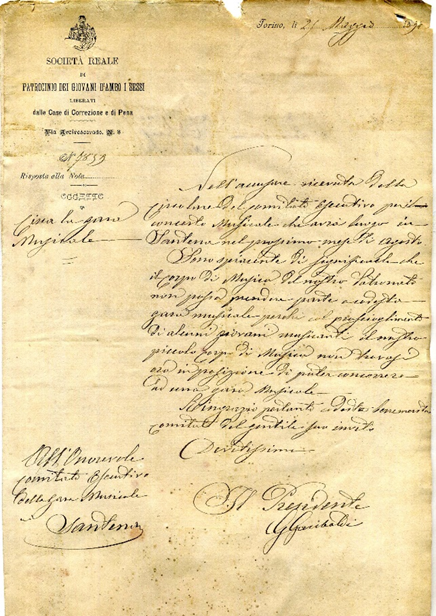 Torino, li 21 Maggio 189
SOCIETÀ REALE
DI
PATROCINIO DEI GIOVANI D'AMBO I SESSI
LIBERATI
dalle Case di Correzione e di Pena
Via Arcivescovado, N. 9
N° 1859
Risposta alla Nota
OGGETTO
Circa la gara
Musicale
Nell'accusare ricevuta della
circolare del comitato Esecutivo per il
concerto Musicale che avrà luogo in
Santena nel prossimo mese di Agosto
Sono spiacente di significarle che
il corpo di Musica del nostro Patronato
non possa prendere parte a codesta
gara musicale perchè col proscioglimento
di alcuni giovani musicanti il nostro
piccolo corpo di Musica non trovasi
ora in posizione di poter concorrere
ad una gara Musicale.
Ringrazio pertanto codesto benemerito
comitato del gentile suo invito
Devotissimo
All'Onorevole
comitato Esecutivo
della Gara Musicale
Santena
Il Presidente
G Garibaldi